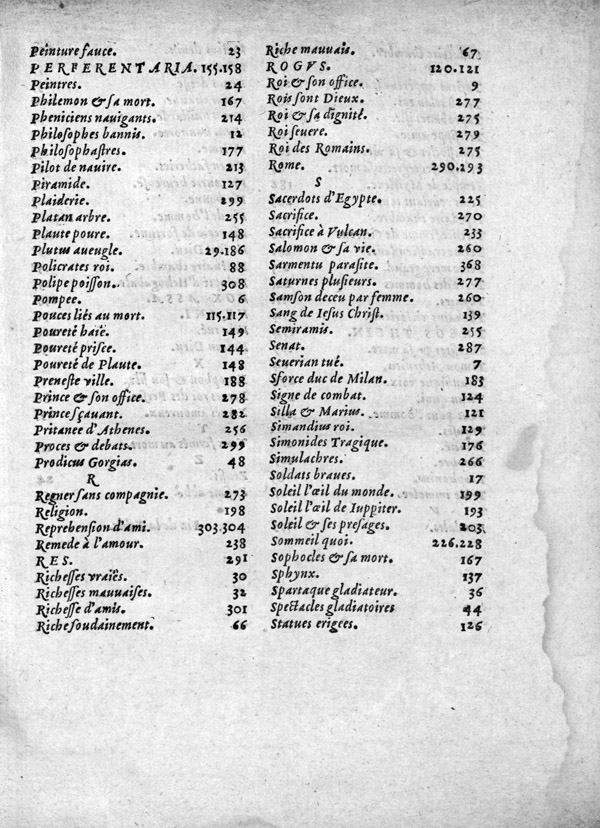 Peinture fauce. 23
PERFERENTARIA. 155.158
Peintres. 24
Philemon & sa mort. 167
Pheniciens nauigants. 214
Philosophes bannis. 12
Philosophastres. 177
Pilot de nauire. 213
Piramide. 127
Plaiderie. 299
Platan arbre. 255
Plaute poure. 148
Plutus aueugle. 29.186
Policrates roi. 88
Polipe poisson. 308
Pompee. 6
Pouces liés au mort. 115.117
Poureté haïe. 149
Poureté prisee. 144
Poureté de Plaute. 148
Preneste ville. 188
Prince & son office. 278
Prince sçauant. 282
Pritanee d'Athenes. 256
Proces & debats. 299
Prodicus Gorgias. 48
R
Regner sans compagnie. 273
Religion. 198
Reprehension d'ami. 303.304
Remede à l'amour. 238
RES. 291
Richesses vraïes. 30
Richesses mauuaises. 32
Richesse d'amis. 301
Riche soudainement. 66
Riche mauuais. 67
ROGVS. 120.121
Roi & son office. 9
Rois sont Dieux. 277
Roi & sa dignité. 275
Roi seuere. 279
Roi des Romains. 275
Rome. 290.293
S
Sacerdots d'Egypte. 225
Sacrifice. 270
Sacrifice à Vulcan. 233
Salomon & sa vie. 260
Sarmentu parasite. 368
Saturnes plusieurs. 277
Samson deceu par femme. 260
Sang de Iesus Christ. 139
Semiramis. 255
Senat. 287
Seuerian tué. 7
Sforce duc de Milan. 183
Signe de combat. 124
Silla & Marius. 121
Simandius roi. 129
Simonides Tragique. 176
Simulachres. 266
Soldats braues. 17
Soleil l'œil du monde. 199
Soleil l'œil de Iuppiter. 193
Soleil & ses presages. 203
Sommeil quoi. 226.228
Sophocles & sa mort. 167
Sphynx. 137
Spartaque gladiateur. 36
Spectacles gladiatoires 44
Statues erigees. 126